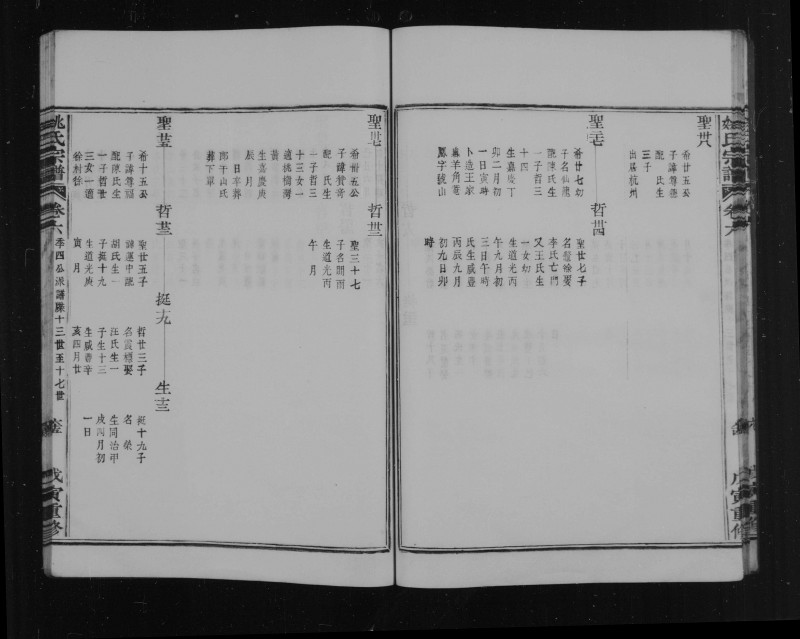 聖卅八
希廿五公
子諱尊德
配 氏生
三子
出居杭州
聖卅七
希廿七幼
子名仙龍
配陳氏生
一子哲三
十四
生嘉慶丁
卯二月初
一日寅時
卜造王家
麻羊角莊
鳳字號山
哲卅四
聖廿七子
名 徐娶
李氏亡門
又王氏生
一女幼
生道光丙
午九月初
三日午時
氏生咸豐
丙辰九月
初九日卯
時
聖卅七
希卅五公
子諱賛秀
配 氏生
一子哲三
十三女一
適桃樹灣
黃
生嘉慶庚
辰 月
日卒葬
鄭子山氏
葬下單
哲卅三
聖三十七
子名開雨
生道光丙
午 月
聖廿五
希十五公
子諱尊冠
配陳氏生
一子哲廿
三女一適
徐村徐
哲廿三
聖廿五子
諱運中配
胡氏生一
子挺十九
生道光庚
寅 月
挺十九
哲廿三子
名震標娶
汪氏生一
子生十三
生咸豐辛
亥四月廿
生十三
挺十九子
名 榮
生同治甲
戌四月初
一日
姚氏宗譜
卷六
季四公派譜牒十三世至十七世
戊寅重修